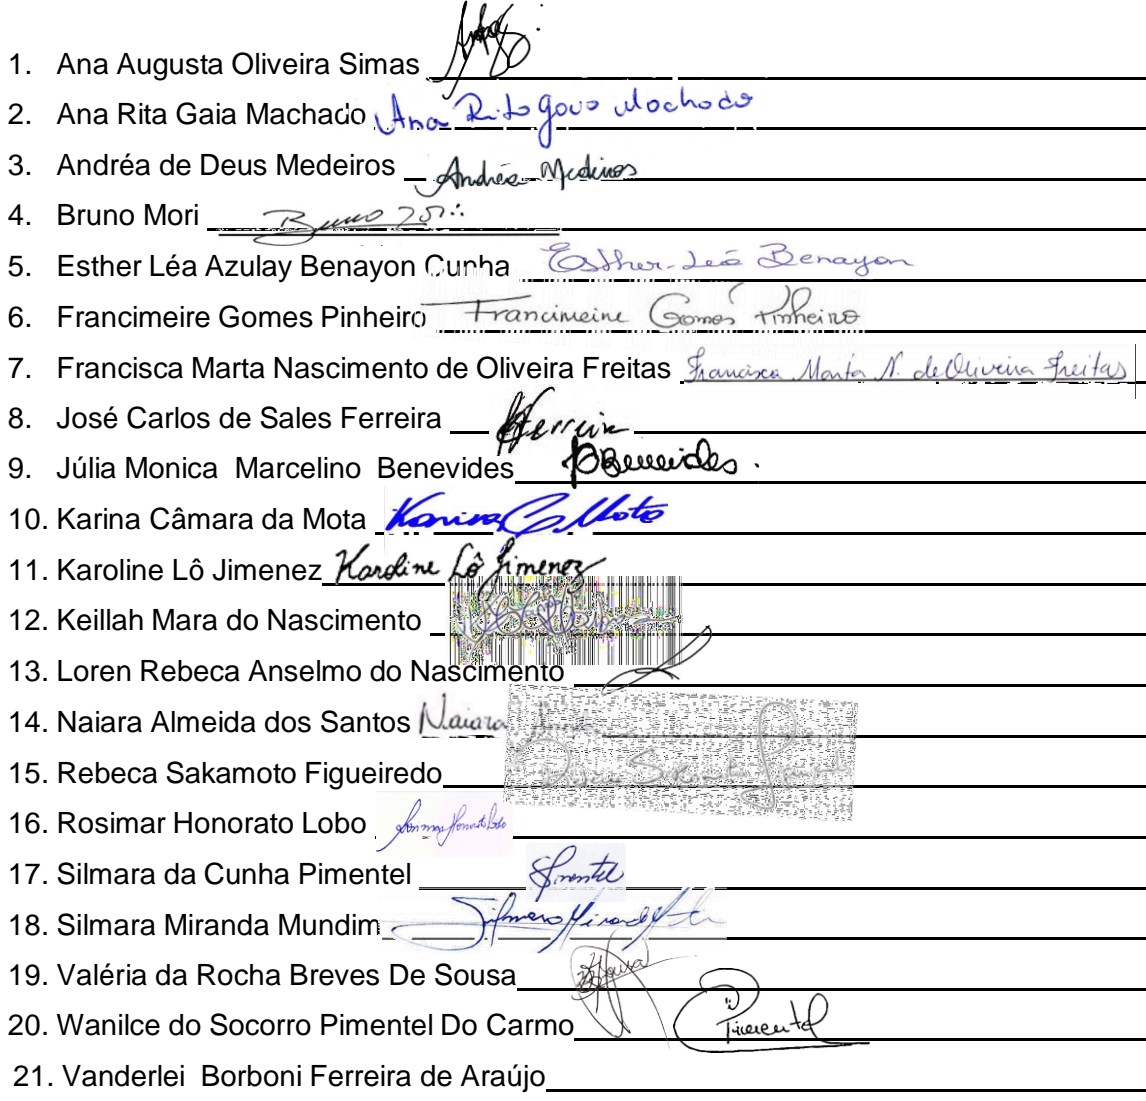 1. Ana Augusta Oliveira Simas
2. Ana Rita Gaia Machado Ana Rita Gaia Machado
3. Andréa de Deus Medeiros Andréa Medeiros
4. Bruno Mori Bruno
5. Esther Léa Azulay Benayon Cunha Esther Léa Benayon
6. Francimeire Gomes Pinheiro Francimeire Gomes Pinheiro
7. Francisca Marta Nascimento de Oliveira Freitas Francisca Marta N. de Oliveira Freitas
8. José Carlos de Sales Ferreira Ferreira
9. Júlia Monica Marcelino Benevides Benevides.
10. Karina Câmara da Mota Karina C Mota
11. Karoline Lô Jimenez Karoline Lô Jimenez
12. Keillah Mara do Nascimento
13. Loren Rebeca Anselmo do Nascimento
14. Naiara Almeida dos Santos Naiara
15. Rebeca Sakamoto Figueiredo
16. Rosimar Honorato Lobo Rosimar Honorato Lobo
17. Silmara da Cunha Pimentel Pimentel
18. Silmara Miranda Mundim Silmara Miranda
19. Valéria da Rocha Breves De Sousa Sousa
20. Wanilce do Socorro Pimentel Do Carmo Pimentel
21. Vanderlei Borboni Ferreira de Araújo